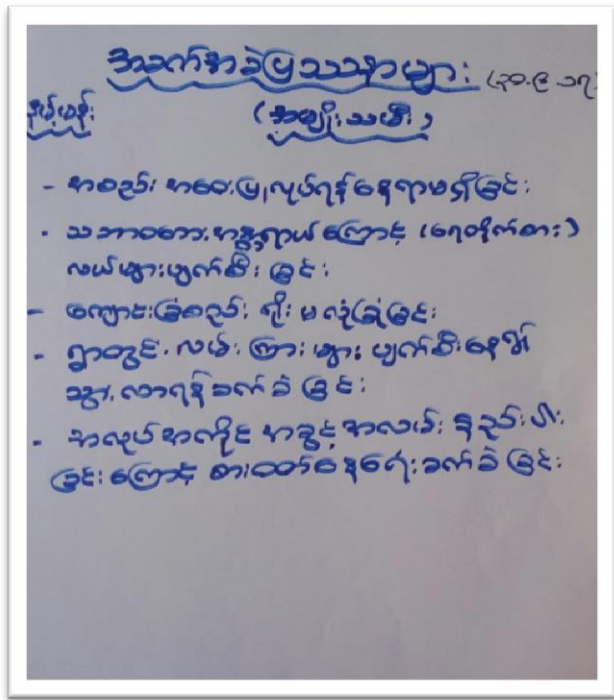 အခက်အခဲပြဿနာများ (၃၀.၉.၁၇)
(အမျိုးသမီး)
- အစည်းအဝေးပြုလုပ်ရန်နေရာမရှိခြင်း
- သဘာဝဘေးအန္တရာယ်ကြောင့် (ရေတိုက်စား)
လယ်များပျက်စီးခြင်း
- ကျောင်းခြံစည်းရိုးမလုံခြုံခြင်း
- ရွာတွင်းလမ်းကြားများပျက်စီးနေ၍
သွားလာရန်ခက်ခဲခြင်း
- အလုပ်အကိုင်အခွင့်အလမ်းနည်းပါး
ခြင်းကြောင့် စားဝတ်နေရေးခက်ခဲခြင်း